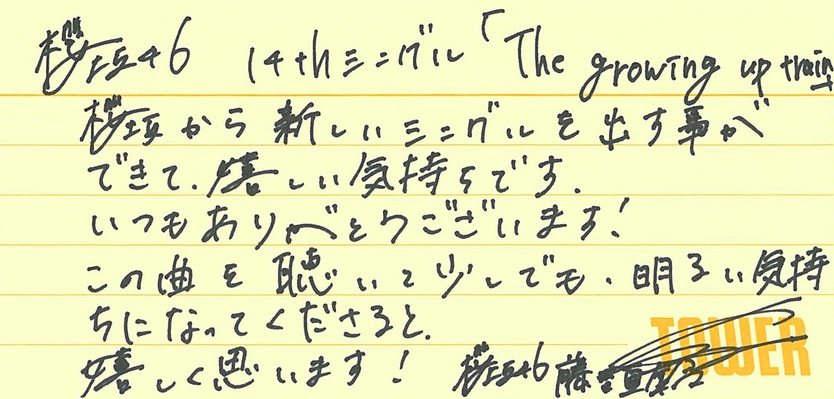 櫻坂46 14thシングル「The growing up train
櫻坂から新しいシングルを出す事が
できて、嬉しい気持ちです.
いつもありがとうございます!
この曲を聴いて少しでも、明るい気持
ちになってくださると、
嬉しく思います! 櫻坂46 藤吉夏鈴
TOWER